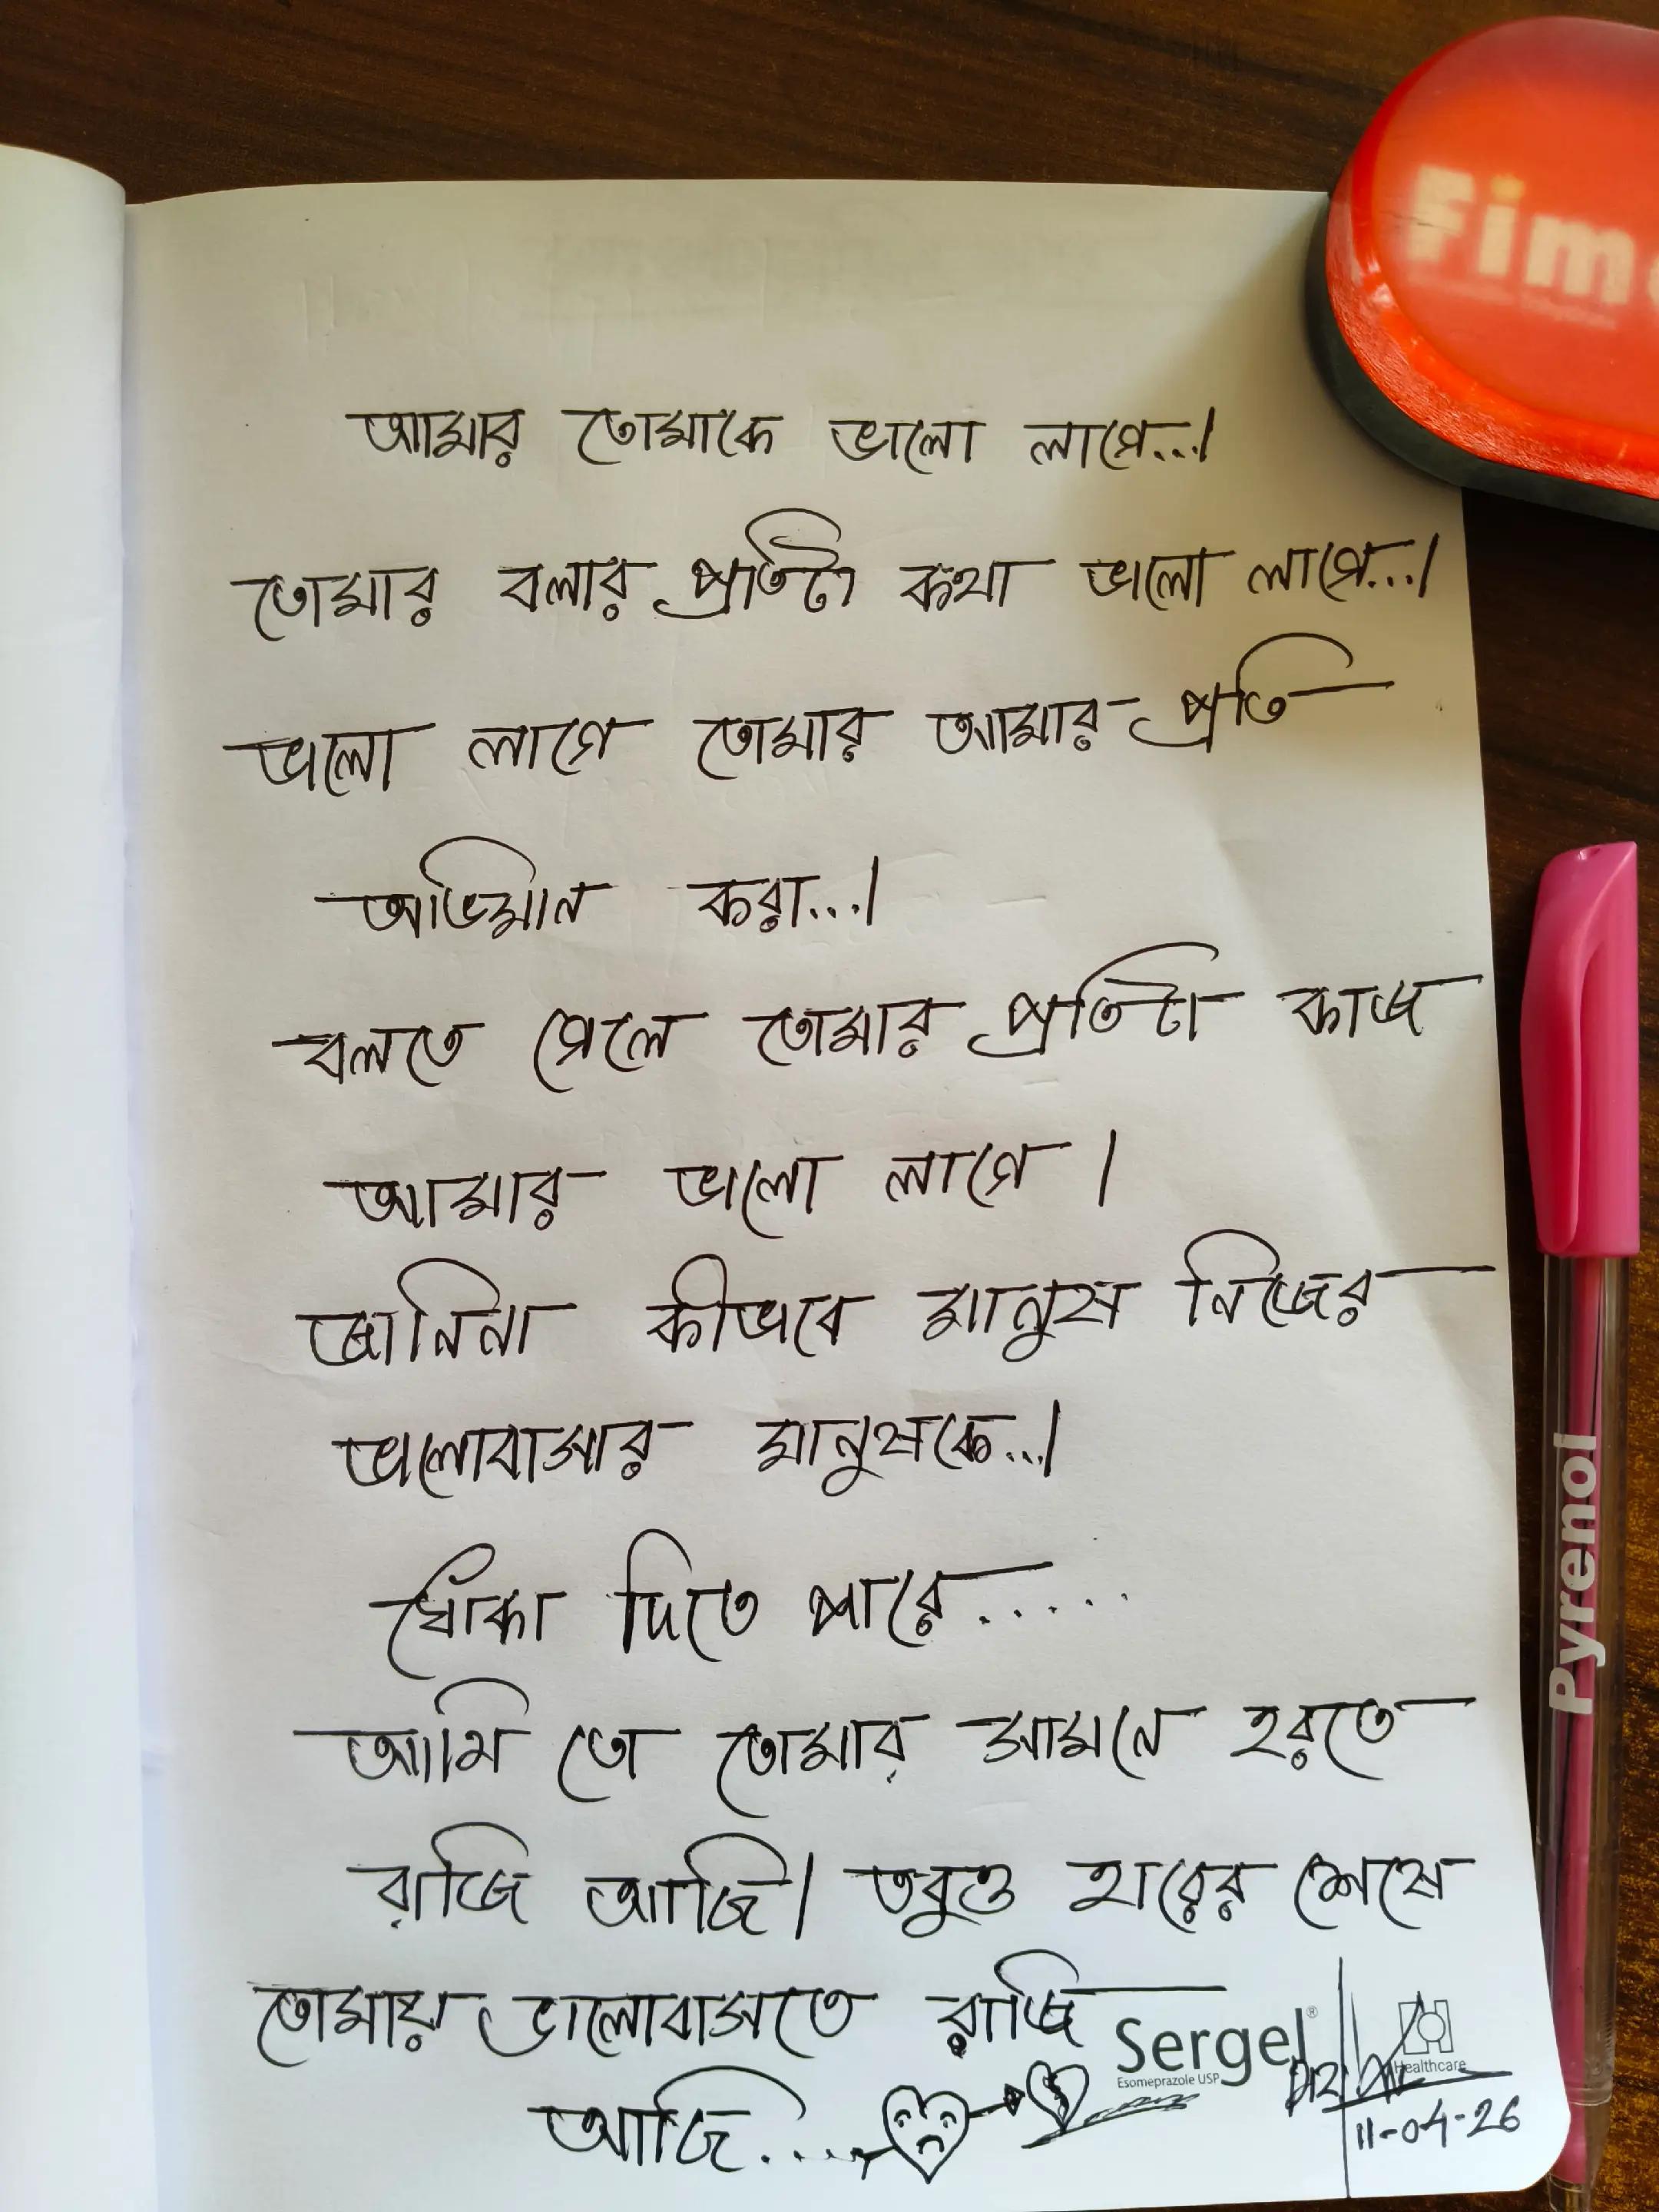 Fim
আমার তোমাকে ভালো লাগে...।
তোমার বলার প্রতিটা কথা ভালো লাগে...।
ভালো লাগে তোমার আমার প্রতি
অভিমান করা...।
বলতে গেলে তোমার প্রতিটা কাজ
আমার ভালো লাগে।
জানিনা কীভাবে মানুষ নিজের
ভালোবাসার মানুষকে...।
ধোঁকা দিতে পারে.....
আমি তো তোমার সামনে হারতে
রাজি আছি। তবুও হারের শেষে
তোমায় ভালোবাসতে রাজি
আছি....
Sergel®
Esomeprazole USP
Healthcare
11-04-26
Pyrenol